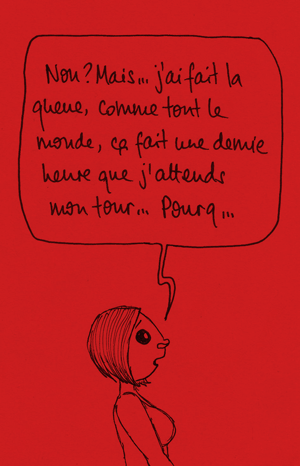 Non? Mais... j'ai fait la
queue, comme tout le
monde, ça fait une demie
heure que j'attends
mon tour... Pourq...